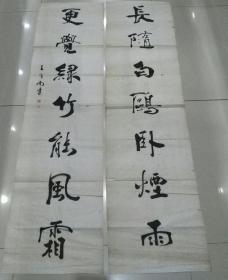 長隨白鷗卧煙雨
更覺綠竹能風霜